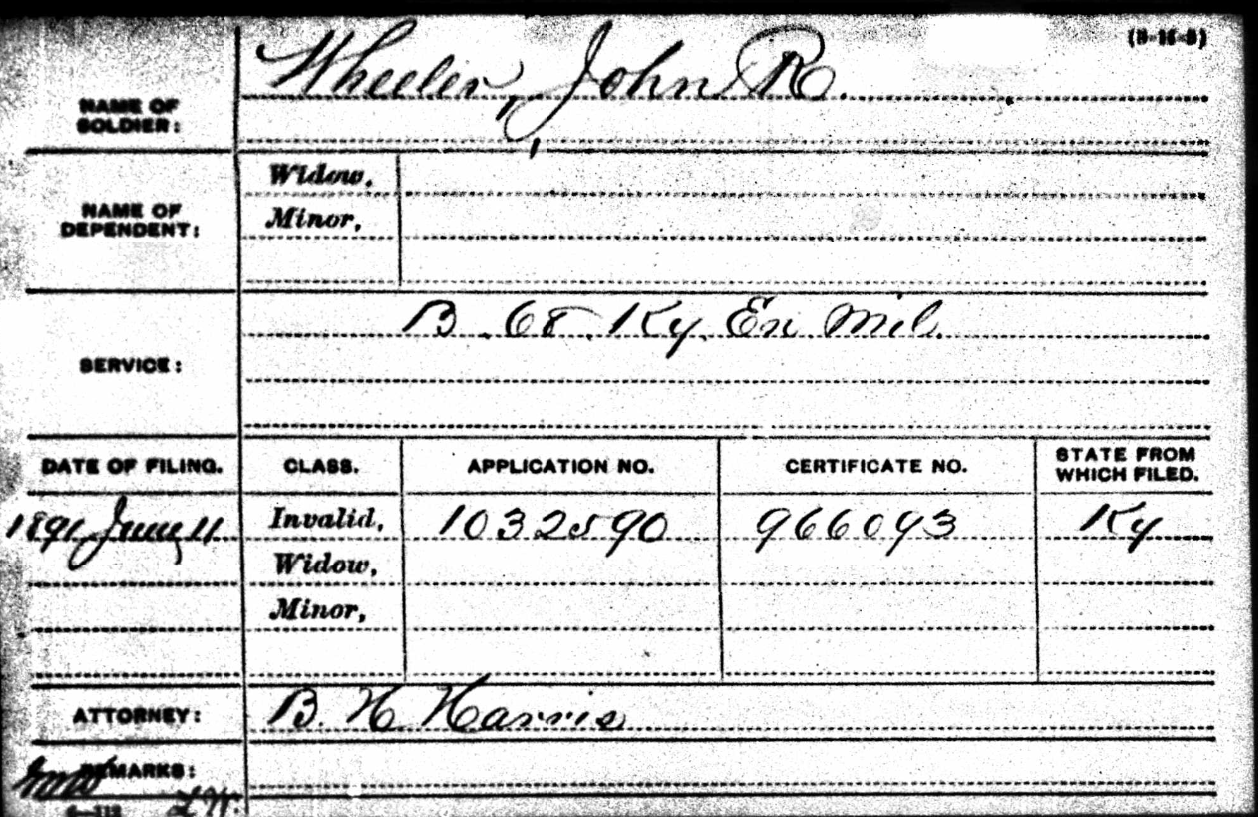 (3-16-3)
Wheeler, John R.
NAME OF
SOLDIER:
NAME OF
DEPENDENT:
Widow,
Minor,
SERVICE:
B. 68. Ky. En Mil.
DATE OF FILING. CLASS. APPLICATION NO. CERTIFICATE NO. STATE FROM WHICH FILED.
1891 June 11 Invalid, 1032590 966093 Ky
Widow,
Minor,
ATTORNEY: B. H Harris
REMARKS: